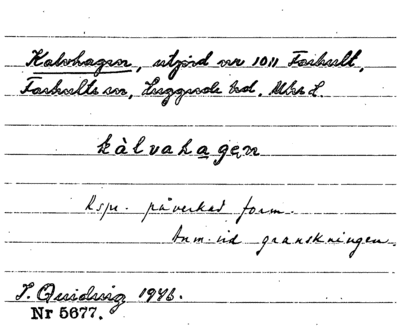 Kalvhagen, utjord nr 1011 Farhult,
Farhults sn, Luggude hd, Mbs L.
kàlvahagęn
Rspr. påverkad form.
Anm. vid granskningen.
I. Quidvig 1946.
Nr 5677.